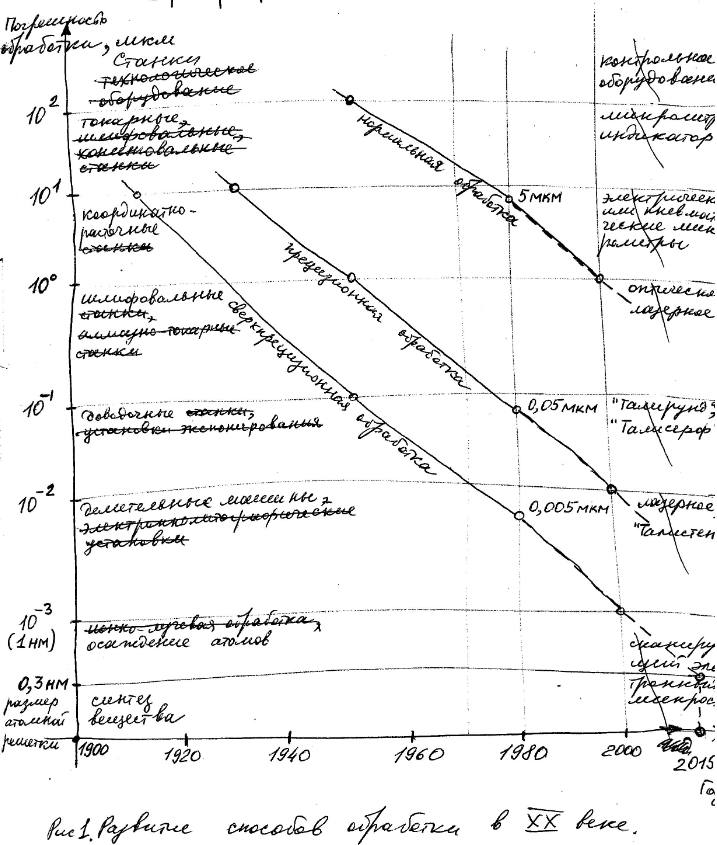 Погрешность
обработки, мкм
Станки
технологическое
оборудование
10²
токарные,
шлифовальные,
хонинговальные
станки
10¹
координатно-
расточные
станки
10⁰
шлифовальные
станки,
алмазно-токарные
станки
10⁻¹
доводочные станки,
установки экспонирования
10⁻²
делительные машины,
электроннолитографические
установки
10⁻³
(1 нм)
ионно-лучевая обработка,
осаждение атомов
0,3 нм
размер
атомной
решетки
синтез
вещества
нормальная обработка
5 мкм
прецизионная обработка
0,05 мкм
сверхпрецизионная обработка
0,005 мкм
контрольное
оборудовани
микромет
индикатор
электрическ
или пневмат
ческие мик
рометры
оптическ
лазерное
"Талиронд",
"Талисерф"
лазерное
"Талистеп
сканиру
щий эле
тронный
микрос
1900
1920
1940
1960
1980
2000
2015
Го
Рис 1. Развитие способов обработки в XX веке.